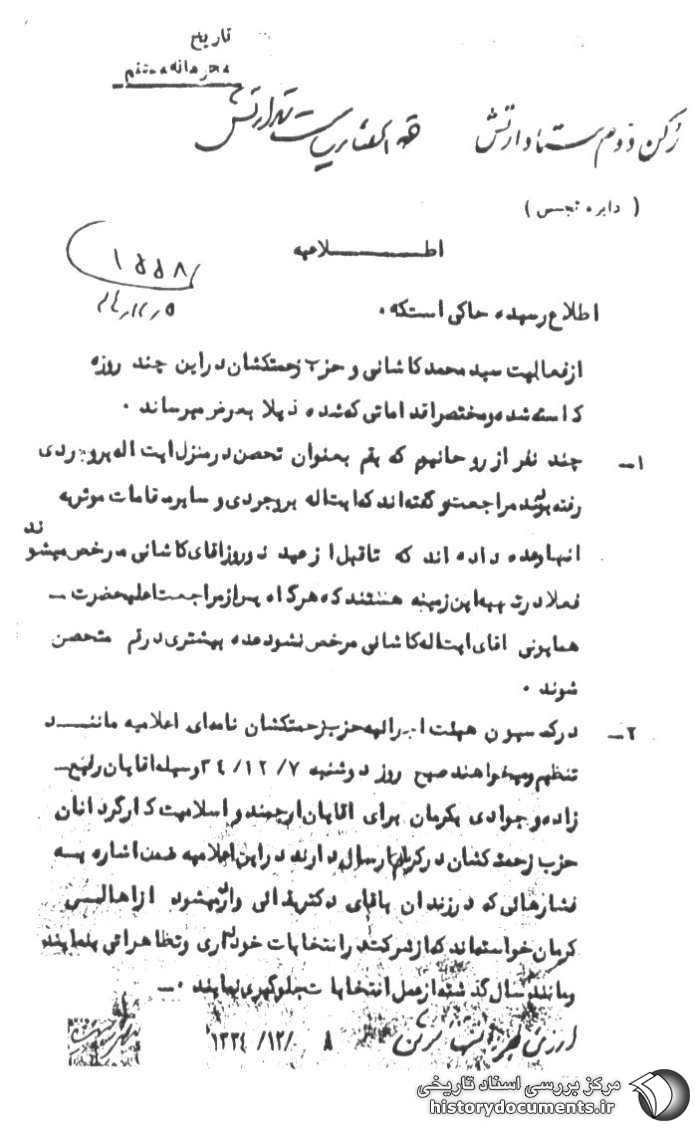 تاریخ
محرمانه مستقیم
رکن دوم ستاد ارتش
( دایره تجسس )
اطـــــــــلاعیه
۱۵۵۸
اطلاع رسیده حاکی استکه .
از فعالیت سید محمد کاشانی و حزب زحمتکشان در این چند روزه
کاسته شده و مختصر اقداماتی که شده ذیلا بعرض میرساند .
۱ــ چند نفر از روحانیون که بقم بعنوان تحصن در منزل ایت اله بروجردی
رفته بودند مراجعت و گفته اند که ایت اله بروجردی و سایر مقامات موثر به
انها وعده داده اند که تا قبل از عید نوروز اقای کاشانی مرخص میشوند
فعلا در تهیه این زمینه هستند که هرگاه پس از مراجعت اعلیحضرت ــ
همایونی اقای ایت اله کاشانی مرخص نشود عده بیشتری در قم متحصن
شوند .
۲ــ در کمسیون هیئت اجرائیه حزب زحمتکشان نامه‌ای اعلامیه ماننـــد
تنظیم و میخواهند صبح روز دوشنبه ۳۴/۱۲/۷ وسیله اقایان رفیع ــ
زاده و جوادی بکرمان برای اقایان ارجمند و اسلامیت کارگردانان
حزب زحمتکشان در کرمان ارسال دارند در این اعلامیه ضمن اشاره بــه
فشارهائی که در زندان باقای دکتر بقائی وارد میشود از اهالــی
کرمان خواسته‌اند که از شرکت در انتخابات خودداری و تظاهراتی بنمایند
و مانند سال گذشته از عمل انتخابات جلوگیری نمایند . ــ
۸ /۱۲/ ۱۳۳۴
مرکز بررسی اسناد تاریخی
historydocuments.ir